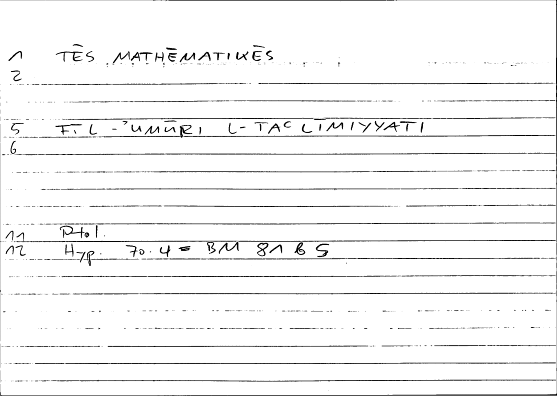 1 TĒS MATHĒMATIKĒS
2
5 FĪ L-ʾUMŪRI L-TAʿLĪMIYYATI
6
11 Ptol.
12 Hyp. 70.4 = BM 81 B 5